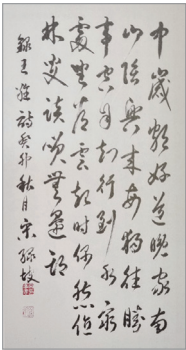 中歲頗好道晚家南
山陲興來每獨往勝
事空自知行到水窮
處坐看雲起時偶然值
林叟談笑無還期
錄王維詩癸卯秋月宋